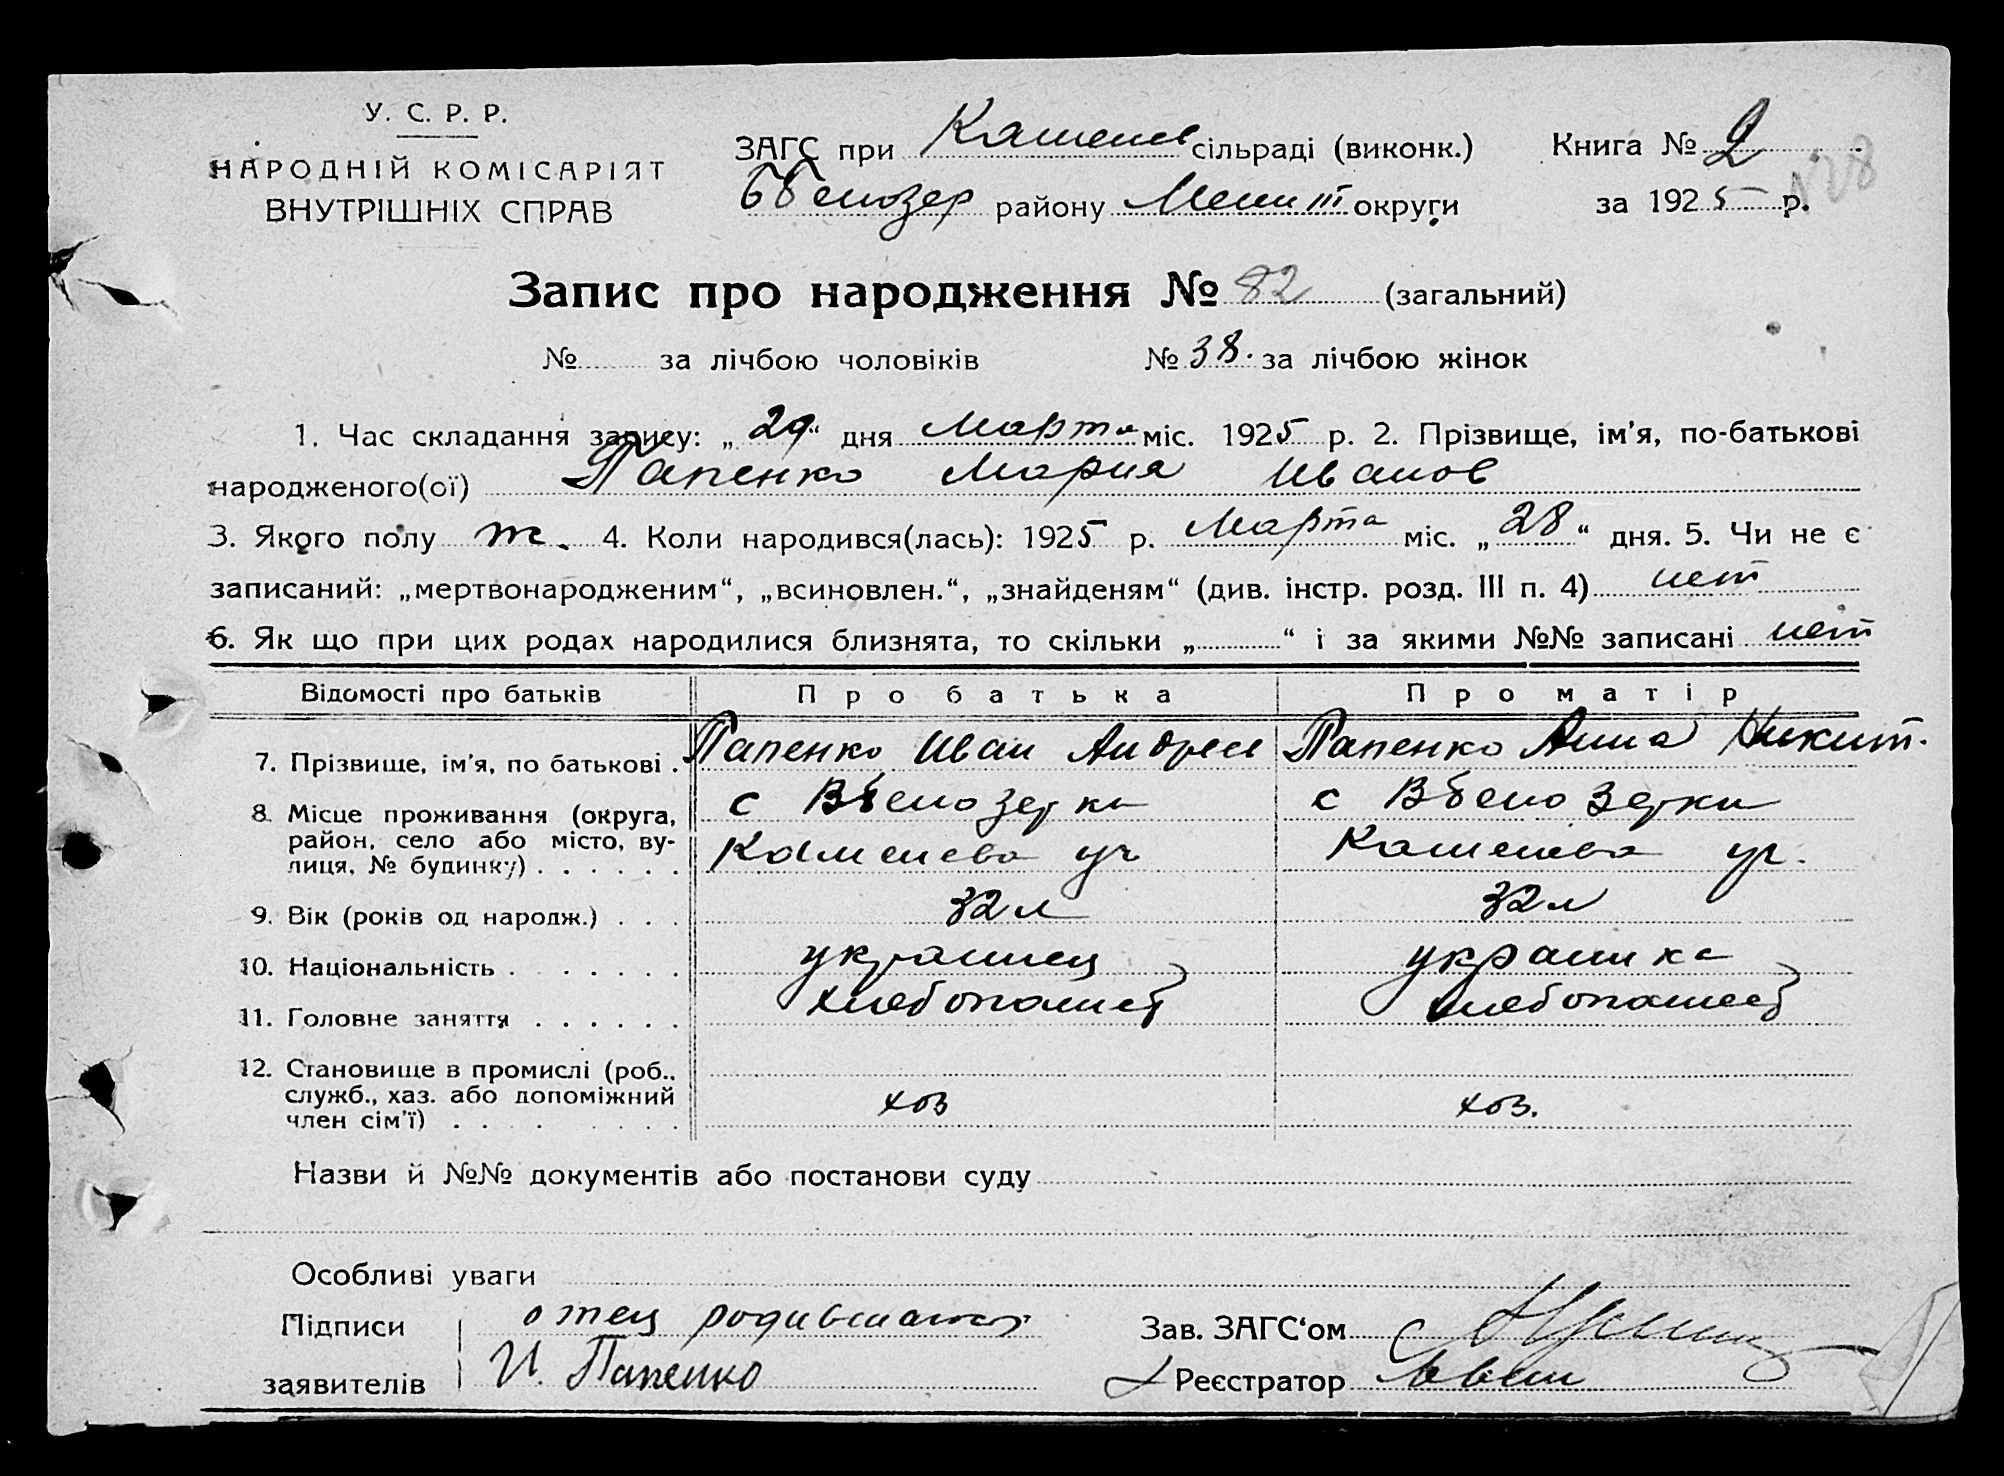 У. С. Р. Р.
НАРОДНІЙ КОМІСАРІЯТ
ВНУТРІШНІХ СПРАВ
ЗАГС при Каменев сільраді (виконк.)
Вбелозер району Мелит округи
Книга № 2
за 1925 р.
Запис про народження № 82 (загальний)
№ за лічбою чоловіків № 38. за лічбою жінок
1. Час складання запису: „29“ дня Марта міс. 1925 р. 2. Прізвище, ім'я, по-батькові
народженого(ої) Папенко Мария Иванов
3. Якого полу ж. 4. Коли народився(лась): 1925 р. Марта міс. „28“ дня. 5. Чи не є
записаний: „мертвонародженим“, „всиновлен.“, „знайденям“ (див. інстр. розд. III п. 4) нет
6. Як що при цих родах народилися близнята, то скільки „ “ і за якими №№ записані нет
Відомості про батьків Про батька Про матір
7. Прізвище, ім'я, по батькові . Папенко Иван Андрее Папенко Анна Никит.
8. Місце проживання (округа, с Вбелозерка с Вбелозерка
район, село або місто, ву-
лиця, № будинку) . . . . . . Каменева уч Каменева уч.
9. Вік (років од народж.) . . . 32 л 32 л
10. Національність . . . . . . . украинец украинка
11. Головне заняття . . . . . . хлебопашест хлебопашест
12. Становище в промислі (роб.,
служб., хаз. або допоміжний хоз хоз.
член сім'ї) . . . . . . . .
Назви й №№ документів або постанови суду
Особливі уваги
Підписи отец родившагося Зав. ЗАГС'ом
заявителів И. Папенко Реєстратор